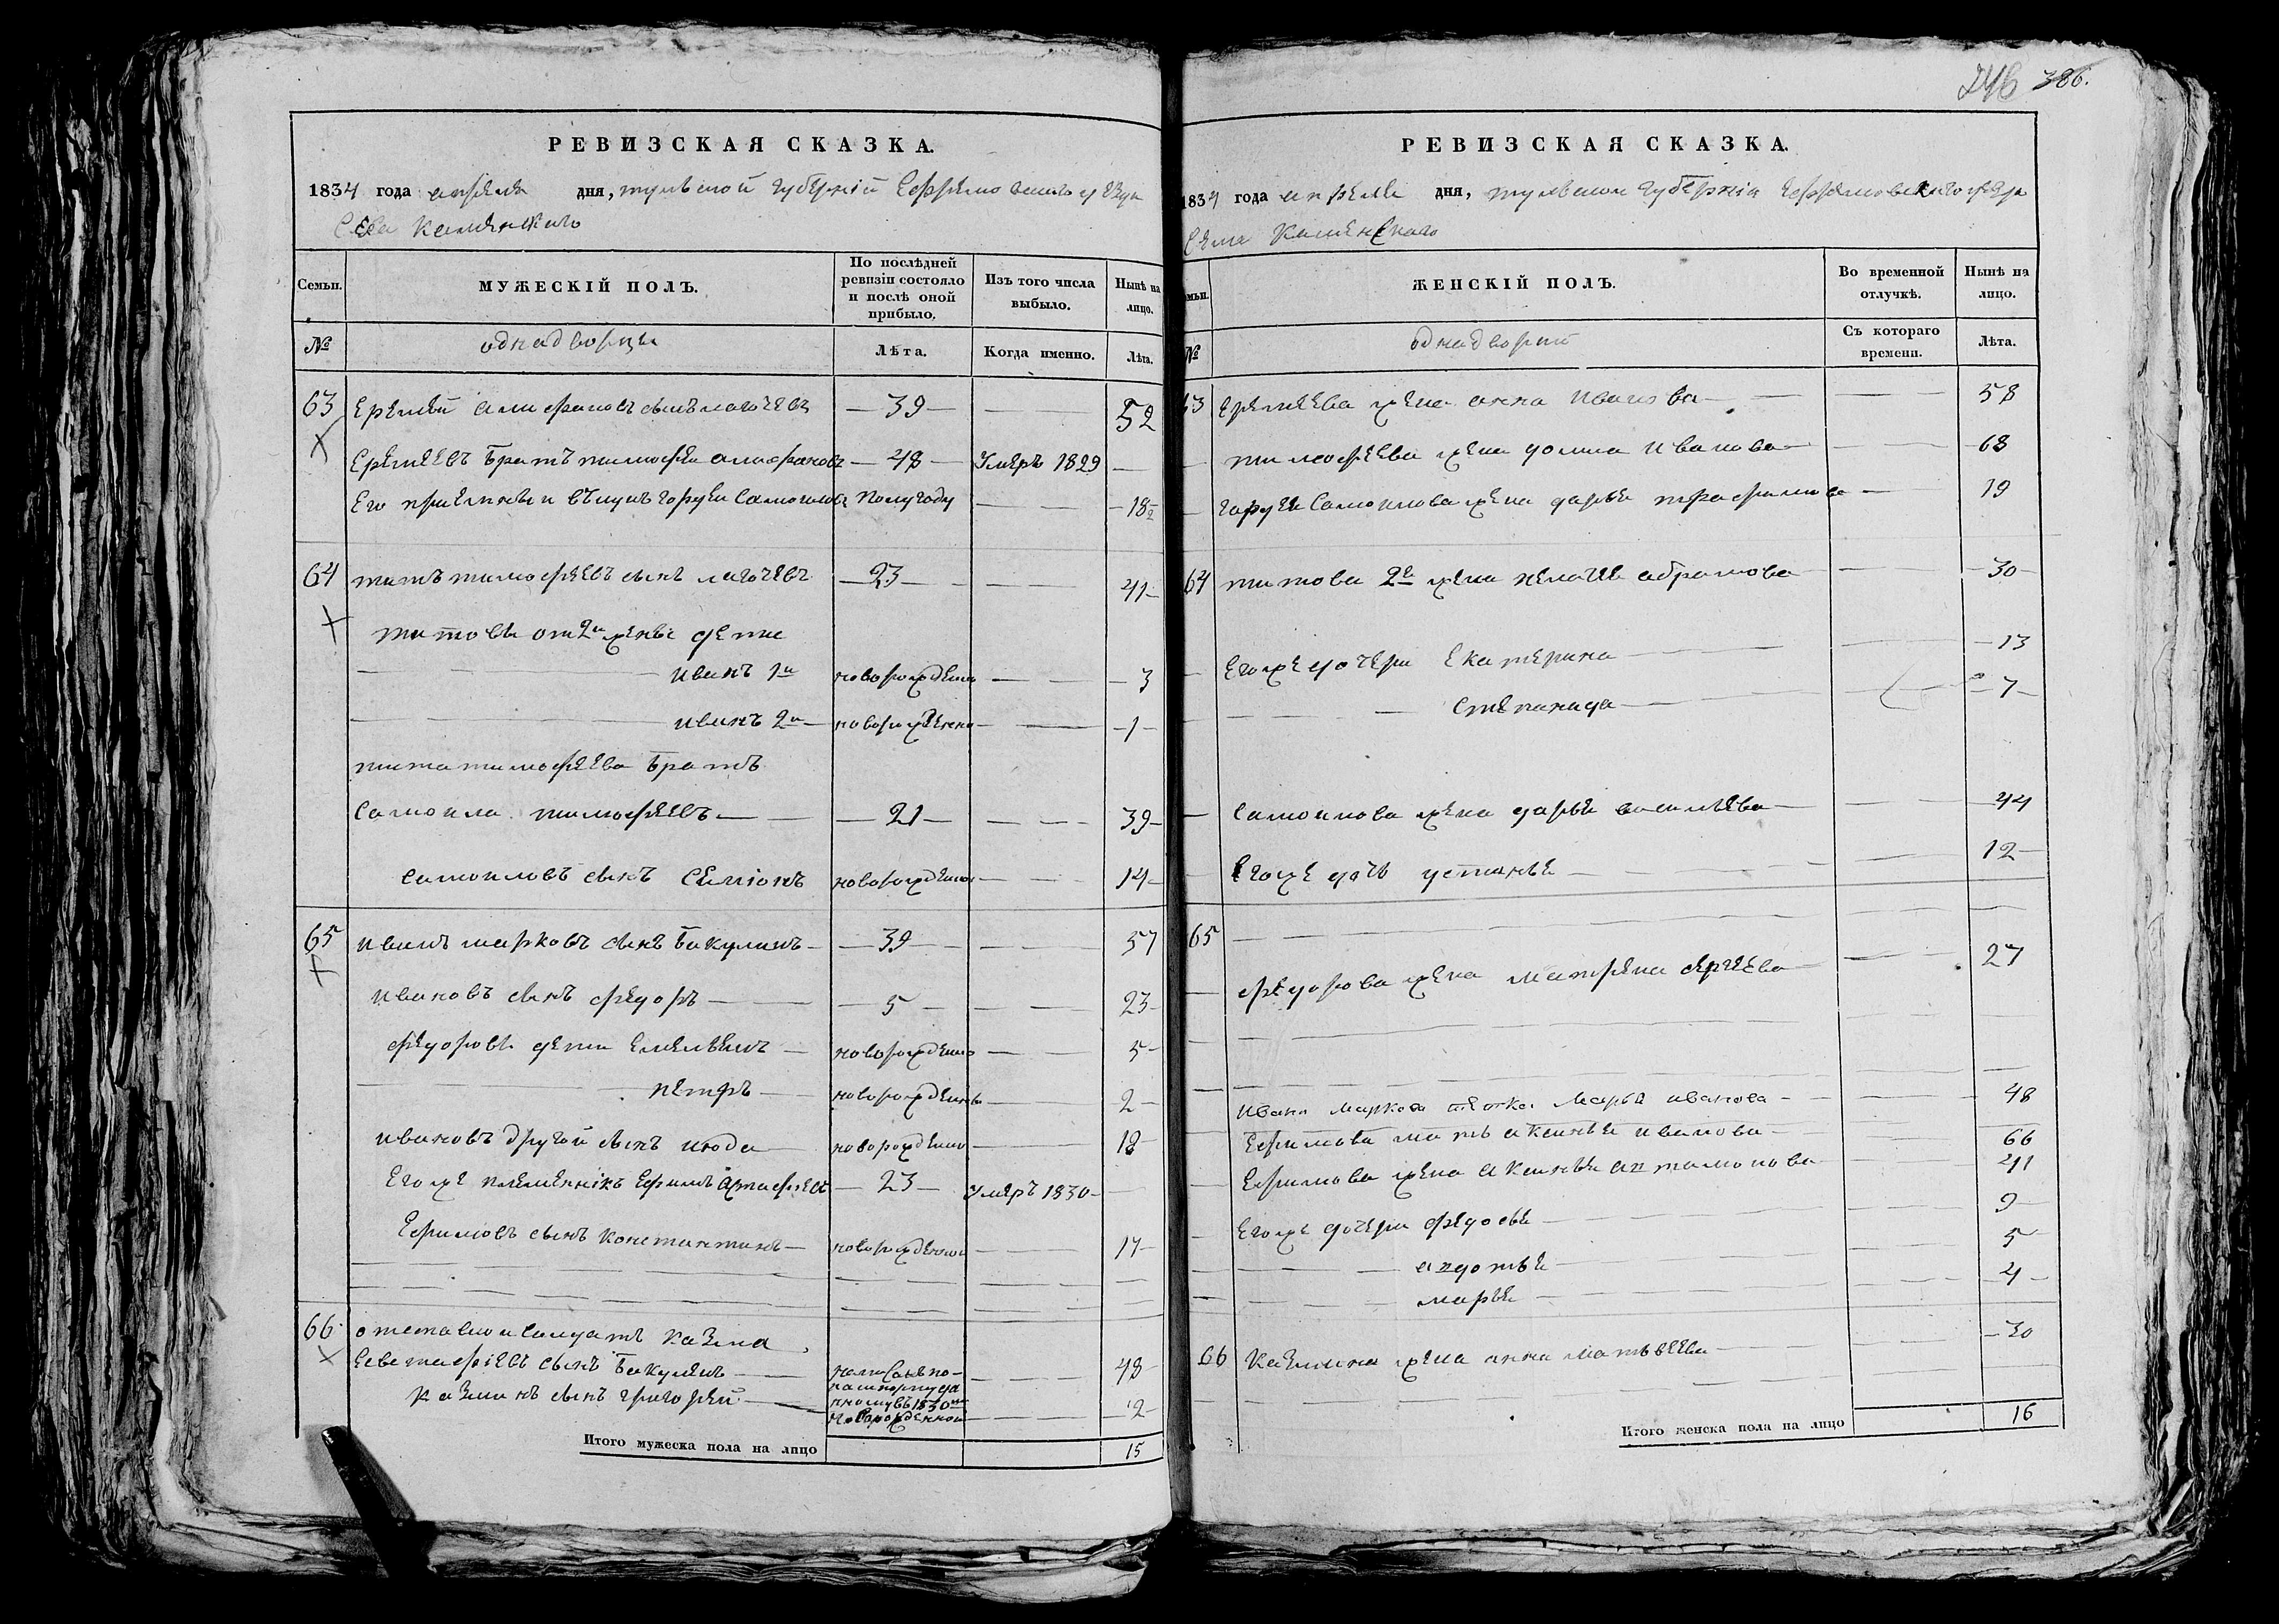 246 386.
РЕВИЗСКАЯ СКАЗКА.
1834 года апреля дня, тульской губерніи Ефремовского уезда
Села Каменского
Семьи. МУЖЕСКІЙ ПОЛЪ. По послѣдней ревизіи состояло и послѣ оной прибыло. Изъ того числа выбыло. Нынѣ на лицо.
№ однадворцы Лѣта. Когда именно. Лѣта.
63 Еремей сынъ — 39 — 52
Еремеевъ братъ тимофеи — 48 — Умеръ 1829
Его Самоиловъ полугоду 18
64 титъ тимофеевъ сынъ — 23 — 41
титовы от 2й жены дети
иванъ 1й новорожденны 3
иванъ 2й новорожденна 1
тита тимофеева братъ
Самоила тимофеевъ — 21 — 39
самоиловъ сынъ Семіонъ новорожденны 14
65 иванъ марковъ сынъ бакулинъ — 39 — 57
ивановъ сынъ федоръ — 5 — 23
федоровы дети емельеянъ новорожденно 5
петръ новорожденнъ 2
ивановъ другой сынъ июда новорожденно 18
Егоже племенникъ Ефимъ — 23 — умеръ 1830
Ефимовъ сынъ константинъ новорожденно 14
66 отставно и солдатъ Казма
сынъ бакулинъ 48
Казминъ сынъ григорей новорожденнои 2
Итого мужеска пола на лицо 15
РЕВИЗСКАЯ СКАЗКА.
1834 года апреля дня, тульскои губерніи Ефремовскаго уезда
Села Каменскаго
мьи. ЖЕНСКІЙ ПОЛЪ. Во временной отлучкѣ. Нынѣ на лицо.
№ однадворки Съ котораго времени. Лѣта.
63 еремеева жена анна Иванова 58
тимофеева жена домна Иванова 68
Самоилова жена дарья 19
64 титова 2я жена пелагея абрамова 30
Егоже дочери Екатерина 13
степанида 7
Самоилова жена дарья василеева 44
Егоже дочь устинья 12
65
федорова жена матрена сергеева 27
Ивана Маркова тетка Марья иванова 48
Ефимова мать аксинья иванова 66
Ефимова жена аксинья антамонова 41
Егоже дочери федосья 9
авдотья 5
марья 4
66 Казмина жена анна матвеева 30
Итого женска пола на лицо 16